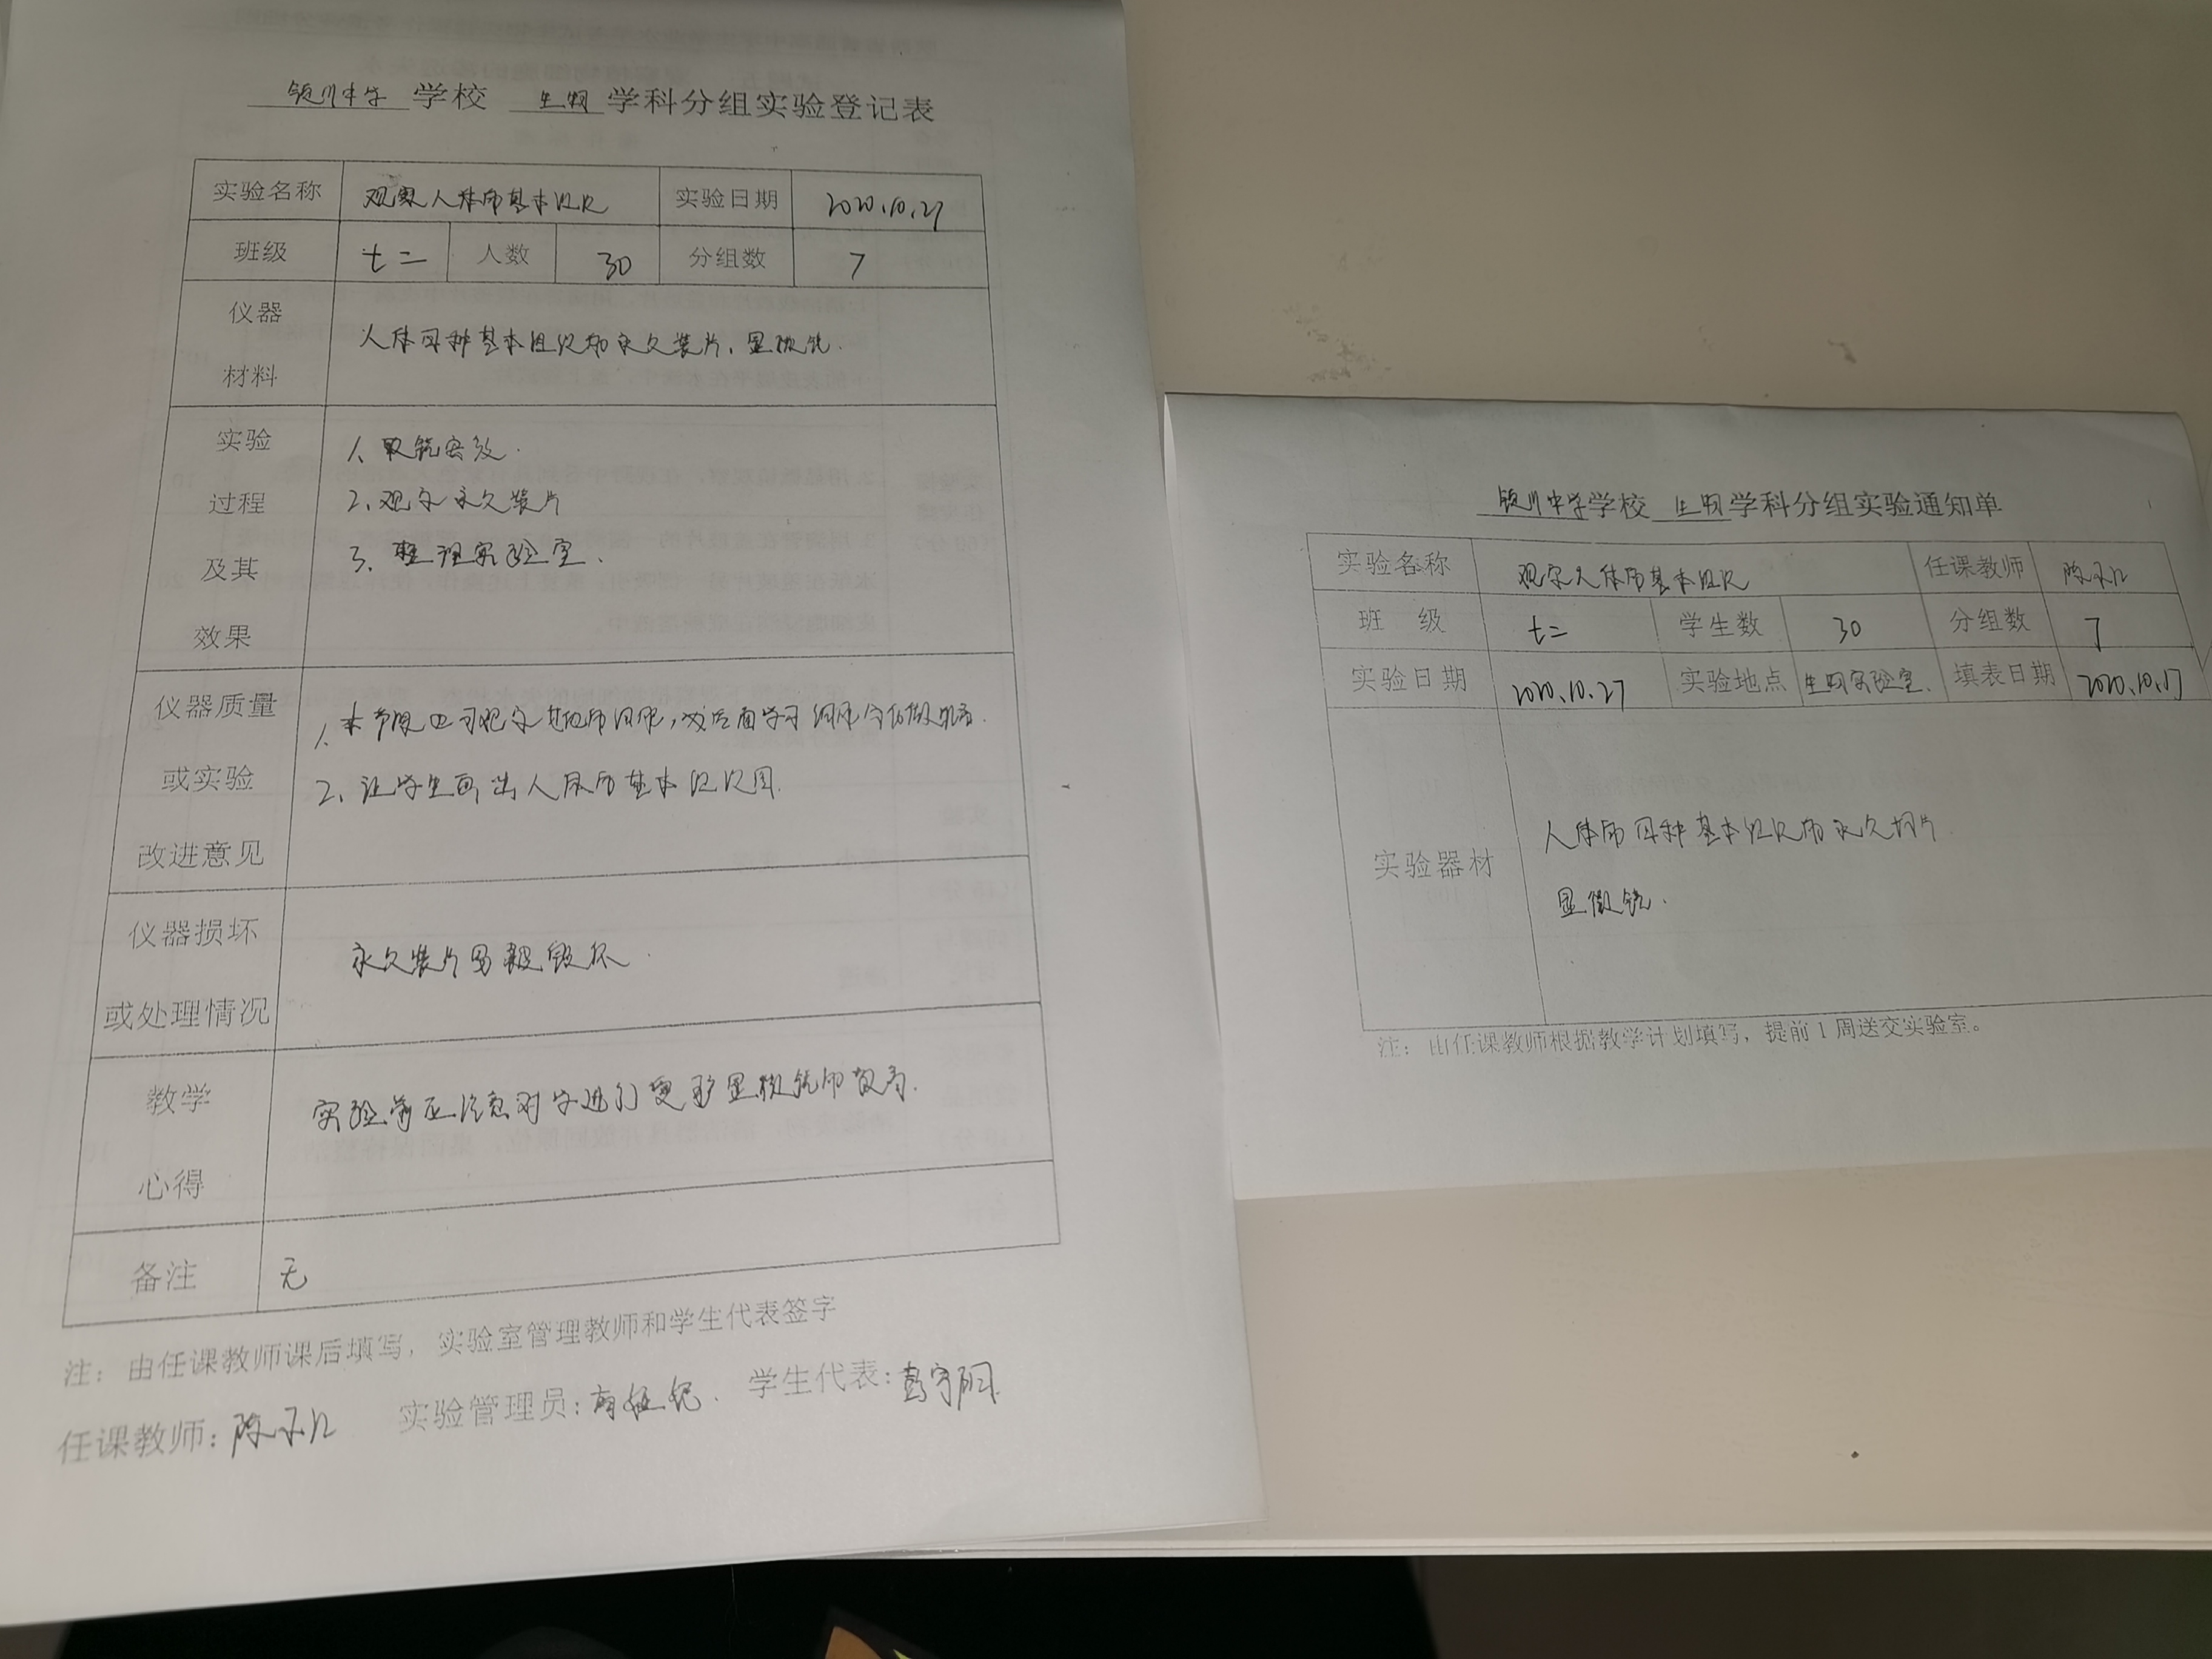 银川中学 学校 生物 学科分组实验登记表
实验名称 观察人体的基本组织 实验日期 2020.10.27
班级 七二 人数 30 分组数 7
仪器
材料
人体四种基本组织的永久装片、显微镜.
实验
过程
及其
效果
1、取镜安放.
2、观察永久装片
3、整理实验室.
仪器质量
或实验
改进意见
1、
2、让学生画出人体的基本组织图.
仪器损坏
或处理情况
永久装片易被毁坏.
教学
心得
实验前应注意对学 进行 显微镜的教育.
备注 无
注：由任课教师课后填写，实验室管理教师和学生代表签字
任课教师: 陈 实验管理员: 学生代表: 彭宇
银川中学 学校 生物 学科分组实验通知单
实验名称 观察人体的基本组织 任课教师 陈
班 级 七二 学生数 30 分组数 7
实验日期 2020.10.27 实验地点 生物实验室. 填表日期 2020.10.17
实验器材
人体的四种基本组织的永久切片
显微镜.
注：由任课教师根据教学计划填写，提前1周送交实验室。